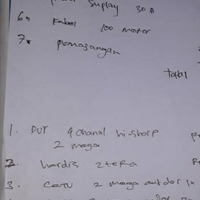 power suplay 30 A
6. Kabel 100 meter
7. pemasangan
total
1. DVR 4 chanal hi-sharp
2 mega
2. hardis 2 tera
3. 2 mega outdor